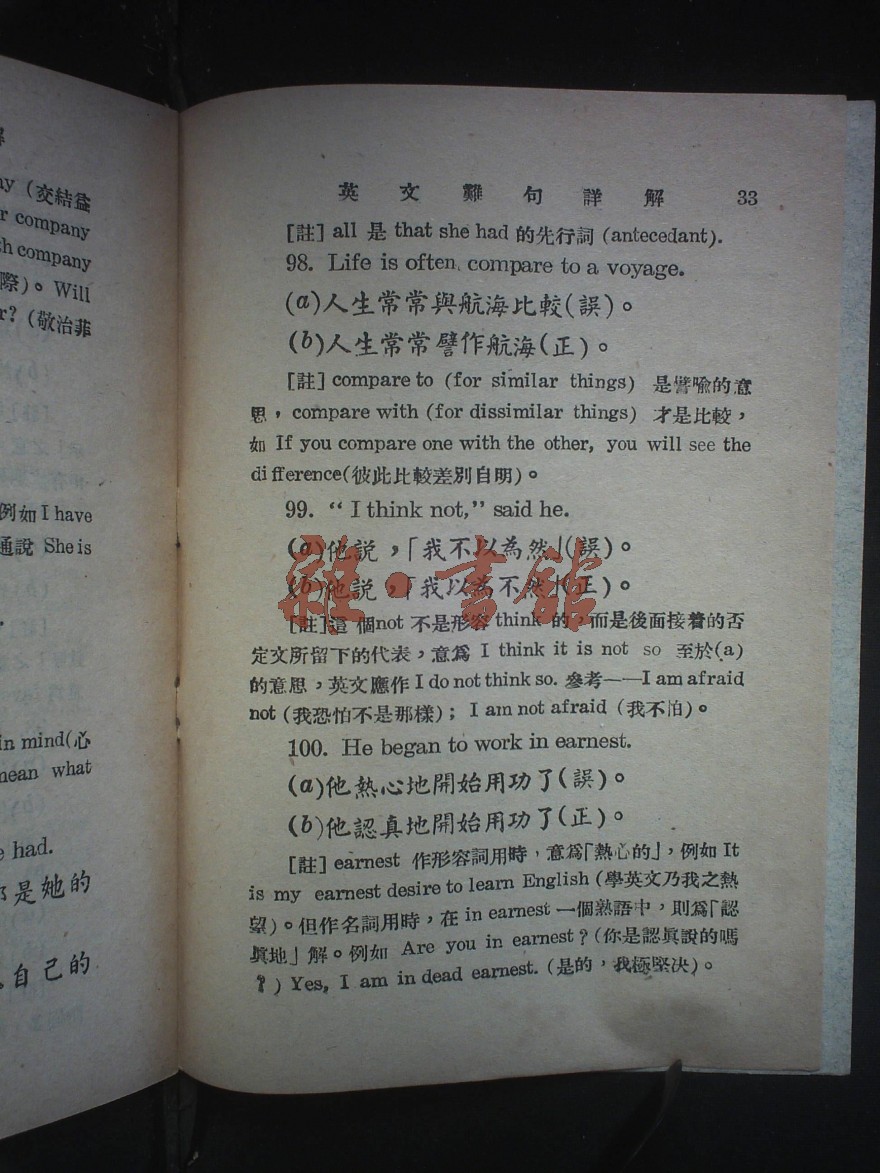 解
ny (交結益
r company
th company
際)。Will
r? (敬治菲
例如 I have
通說 She is
in mind(心
mean what
e had.
是她的
自己的
英文難句詳解 33
[註] all 是 that she had 的先行詞 (antecedant).
98. Life is often compare to a voyage.
(a)人生常常與航海比較(誤)。
(b)人生常常譬作航海(正)。
[註] compare to (for similar things) 是譬喻的意
思，compare with (for dissimilar things) 才是比較，
如 If you compare one with the other, you will see the
difference(彼此比較差別自明)。
99. “I think not,” said he.
(a)他說，「我不以為然」(誤)。
(b)他說，「我以為不然」(正)。
[註]這個not 不是形容 think 的，而是後面接着的否
定文所留下的代表，意爲 I think it is not so 至於(a)
的意思，英文應作 I do not think so. 參考——I am afraid
not (我恐怕不是那樣)；I am not afraid (我不怕)。
100. He began to work in earnest.
(a)他熱心地開始用功了(誤)。
(b)他認真地開始用功了(正)。
[註] earnest 作形容詞用時，意爲「熱心的」，例如 It
is my earnest desire to learn English (學英文乃我之熱
望)。但作名詞用時，在 in earnest 一個熟語中，則爲「認
眞地」解。例如 Are you in earnest? (你是認眞說的嗎
?) Yes, I am in dead earnest. (是的，我極堅決)。
雜·書館